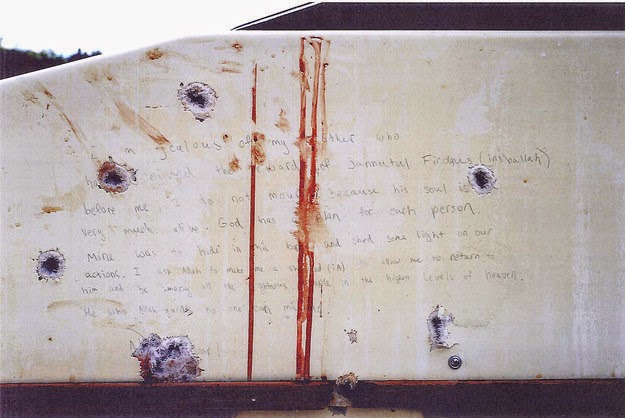 I'm jealous of my brother who
ha ceived the reward of Jannutul Firdaus (inshallah)
before me. I do not mourn because his soul is
very much alive. God has plan for each person.
Mine was to hide in this b and shed some light on our
actions. I ask Allah to make me a (IA) to allow me to return to
him and be among all the people in the highest levels of heaven.
He who Allah guides no one can